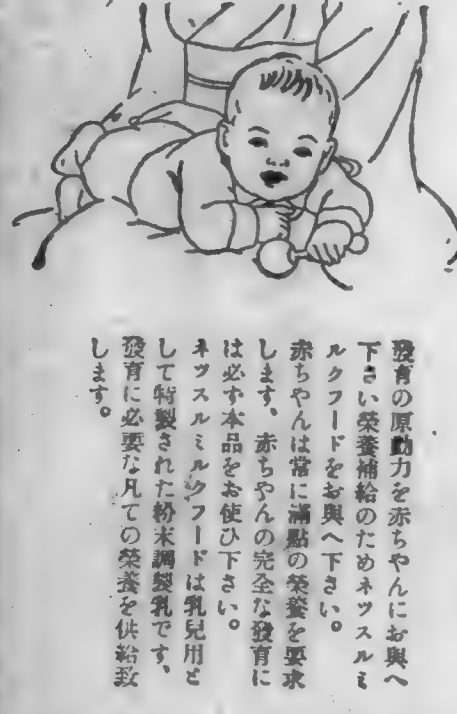 發育の原動力を赤ちやんにお與へ
下さい榮養補給のためネツスルミ
ルクフードをお與へ下さい。
赤ちやんは常に滿點の榮養を要求
します、赤ちやんの完全な發育に
は必ず本品をお使ひ下さい。
ネツスルミルクフードは乳兒用と
して特製された粉末調製乳です、
發育に必要な凡ての榮養を供給致
します。